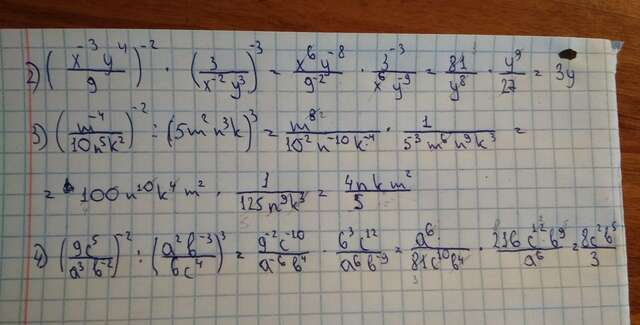 2) (x⁻³y⁴/9)⁻² · (3/x⁻²y³)⁻³ = x⁶y⁻⁸/9⁻² · 3⁻³/x⁶y⁻⁹ = 81/y⁸ · y⁹/27 = 3y
3) (m⁻⁴/10n⁵k²)⁻² : (5m²n³k)³ = m⁸/10⁻²n⁻¹⁰k⁻⁴ · 1/5³m⁶n⁹k³ =
= 100n¹⁰k⁴m² · 1/125n⁹k³ = 4nkm²/5
4) (9c⁵/a³b⁻²)⁻² : (a²b⁻³/6c⁴)³ = 9⁻²c⁻¹⁰/a⁻⁶b⁴ · 6³c¹²/a⁶b⁻⁹ = a⁶/81c¹⁰b⁴ · 216c¹²b⁹/a⁶ = 8c²b⁵/3